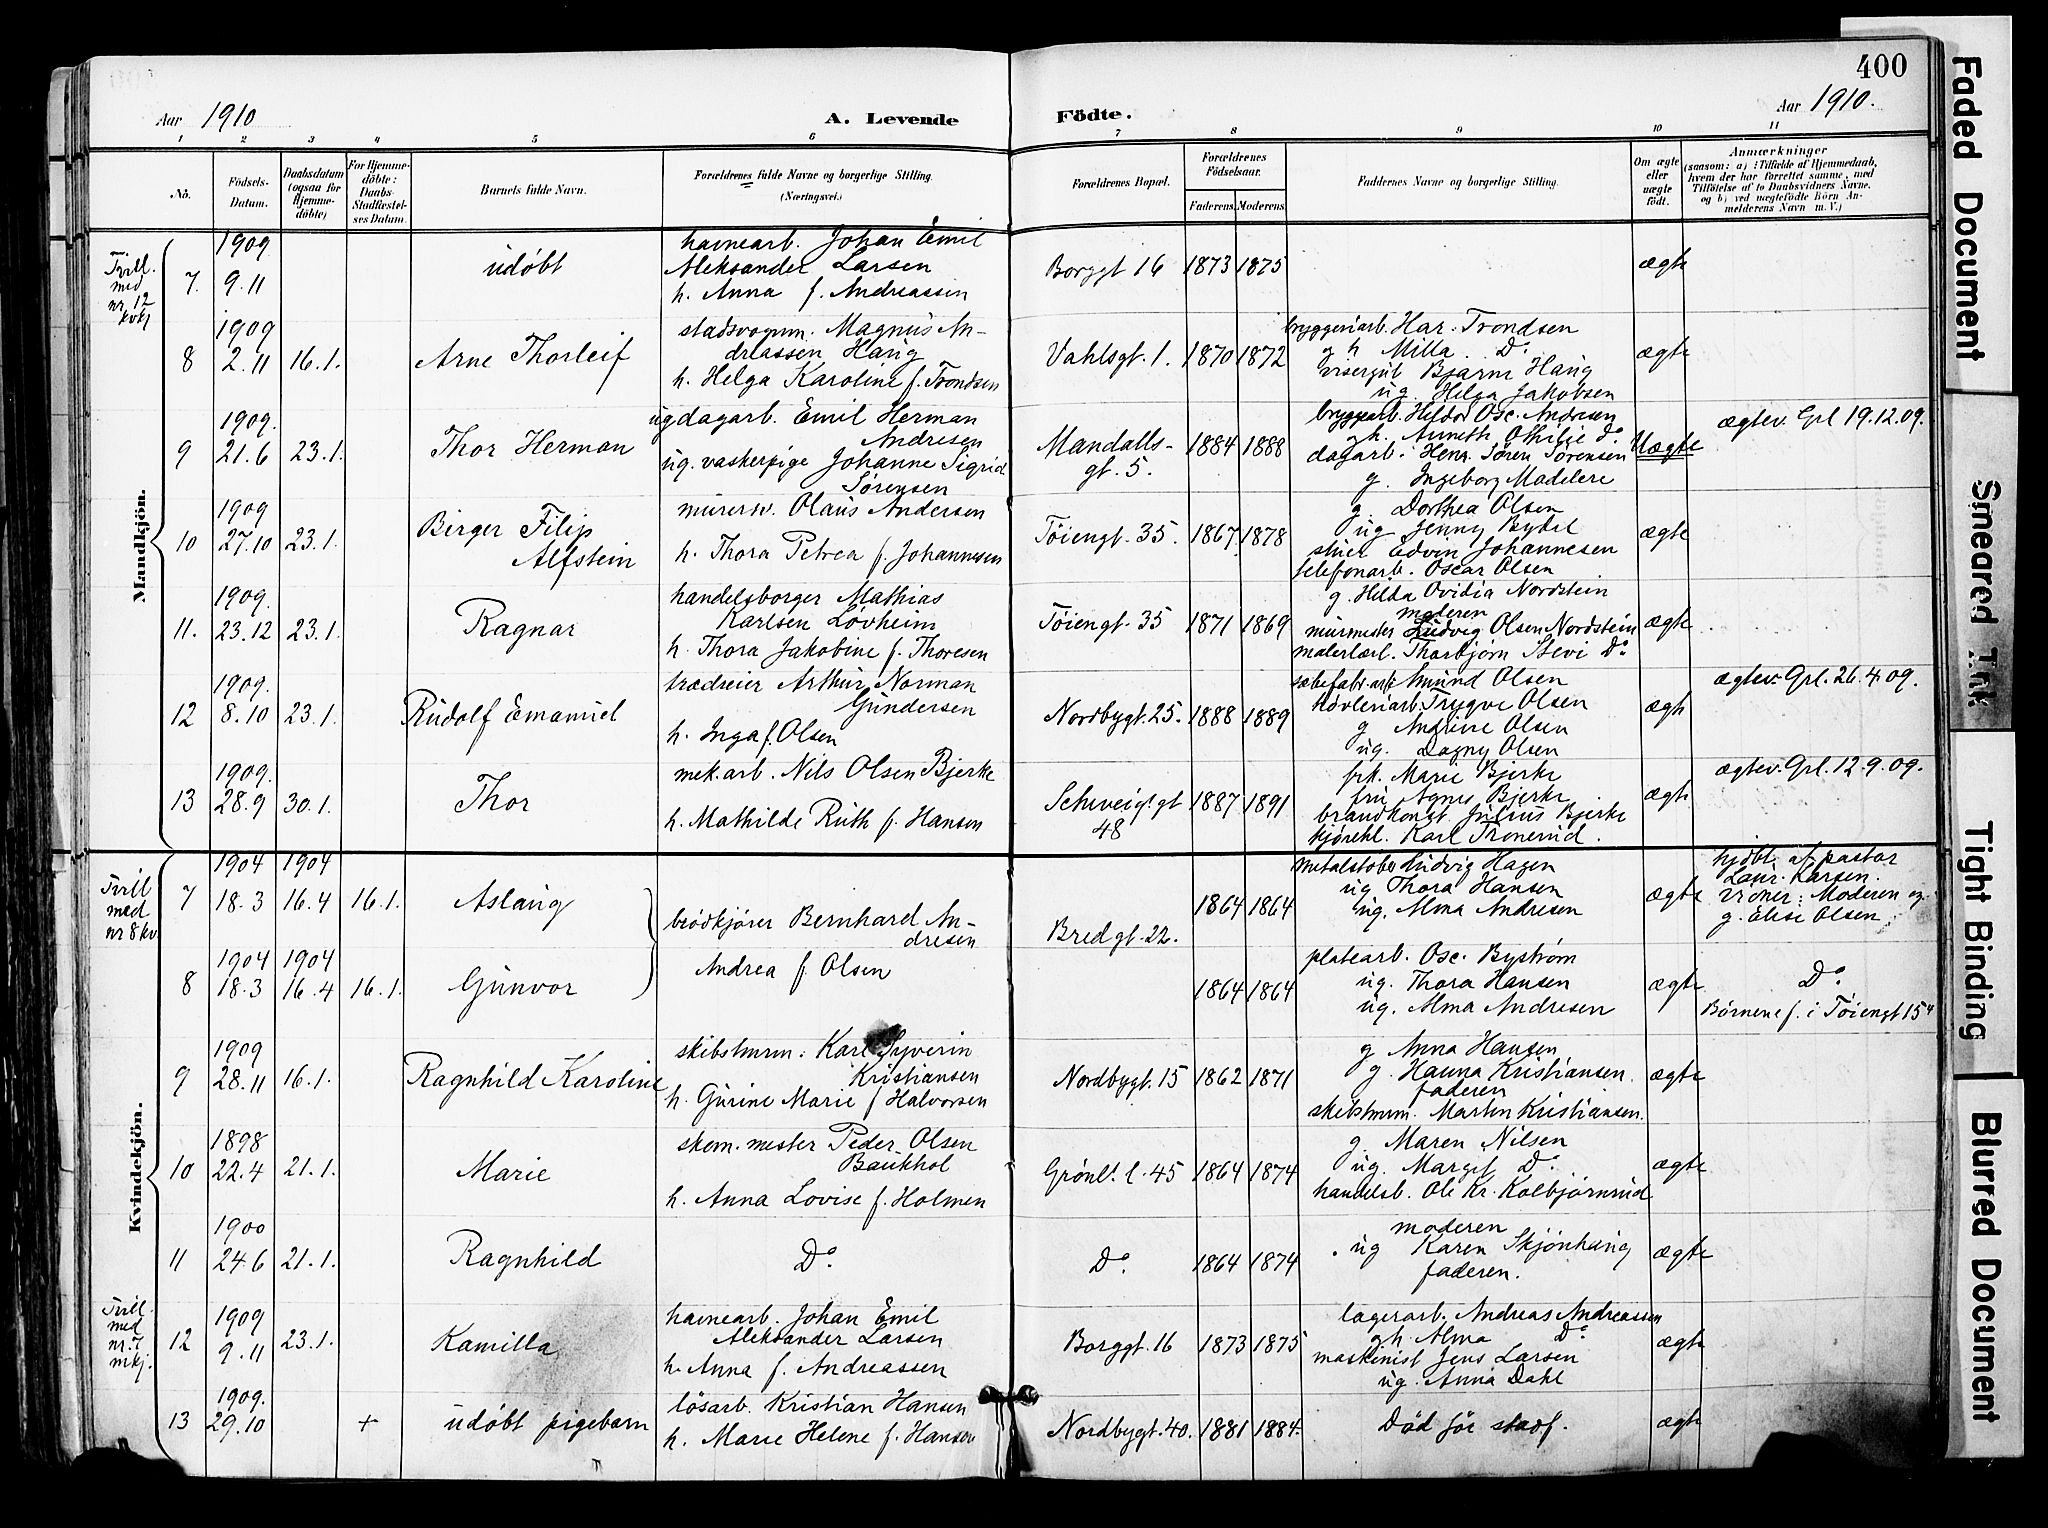 400
Aar 1910
A. Levende Födte.
Aar 1910.
1 2 3 4 5 6 7 8 9 10 11
No.
Födsels-
Datum.
Daabsdatum
(ogsaa for
Hjemme-
döbte)
For Hjemme-
döbte:
Daabs-
Stadfæstel-
ses Datum.
Barnets fulde Navn.
Forældrenes fulde Navne og borgerlige Stilling.
(Næringsvei.)
Forældrenes Bopæl.
Forældrenes
Födselsaar.
Faderens. Moderens.
Faddernes Navne og borgerlige Stilling.
Om ægte
eller
uægte
födt.
Anmærkninger
(saasom: a) i Tilfælde af Hjemmedaab,
hvem der har forrettet samme, med
Tilföielse af to Daabsvidners Navne,
og b) ved uægtefödte Börn An-
melderens Navn m. V.)
Mandkjön.
Tvill.
med
nr. 12
kvkj
7. 1909 9.11
udøbt
havnearb. Johan Emil
Aleksander Larsen
h. Anna f. Andreassen
Borggt 16 1873 1875
ægte
8 1909 2.11 16.1.
Arne Thorleif
stadsvognm. Magnus An-
dreassen Haug
h. Helga Karoline f. Trondsen
Vahlsgt. 1. 1870 1872
bryggeriarb. Har. Trondsen
g h Milla Do.
visergut Bjarne Haug
ug. Helga Jakobsen
ægte
9 1909. 21.6 23.1.
Thor Herman
ug dagarb. Emil Herman
Andresen
ug. vaskerpige Johanne Sigrid
Sørensen
Mandalls-
gt. 5. 1884 1888
bryggarb. Hildor Osc. Andresen
gh. Anneth Othilie Do
dagarb. Henr. Søren Sørensen
g. Ingeborg Madelere
Uægte
ægtev. Grl 19.12.09.
10 1909 27.10 23.1.
Birger Filip
Alfstein
murersv. Olaus Andersen
h. Thora Petrea f. Johannesen
Tøiengt. 35. 1867 1878
g. Dorthea Olsen
ug Jenny Bydel
stuer Edvin Johannesen
telefonarb. Oscar Olsen
ægte
11. 1909. 23.12 23.1.
Ragnar
handelsborger Mathias
Karlsen Løvheim
h. Thora Jakobine f. Thoresen
Tøiengt. 35 1871 1869
g. Hilda Ovidia Nordstein
moderen
murmester Ludvig Olsen Nordstein
malerlærl. Thorbjørn Sievi Do
ægte
12 1909. 8.10 23.1.
Rudolf Emanuel
trædreier Arthur Norman
Gundersen
h. Inga f. Olsen
Nordbygt. 25. 1888 1889
sæbefabr. arb. Amund Olsen
høvleriarb. Trygve Olsen
g Andrine Olsen
ug. Dagny Olsen
ægte
ægtev. Grl. 26.4.09.
13 1909. 28.9 30.1.
Thor
mek. arb. Nils Olsen Bjerke
h. Mathilde Ruth f. Hansen
Schweig. gt
48 1887 1891
frk. Marie Bjerke
fru Agnes Bjerke
brandkonst. Julius Bjerke
kjørekl. Karl Tronerud.
ægte
ægtev. Grl. 12.9.09.
Kvindekjön.
Tvill
med
nr 8 kv
7 1904 18.3 1904 16.4 16.1.
Aslaug
brødkjører Bernhard An-
dresen
Andrea f. Olsen
Bredgt. 22. 1864 1864
metalstøber Ludvig Hagen
ug. Thora Hansen
ug. Alma Andresen
ægte
hjdbt. af pastor
Laur. Larsen.
Vidner: Moderen og
g. Elise Olsen
8 1904 18.3 1904 16.4 16.1.
Gunvor
1864 1864
platearb. Osc. Bystrøm
ug. Thora Hansen
ug. Alma Andresen
ægte
Do.
Børnene f. i Tøiengt 15
9 1909 28.11 16.1.
Ragnhild Karoline
skibstmrm. Karl Syverin
Kristiansen
h. Gurine Marie f Halvorsen
Nordbygt. 15 1862 1871
g Anna Hansen
g. Hanna Kristiansen.
faderen
skibstmrm. Martin Kristiansen.
ægte
10 1898 22.4 21.1.
Marie
skom. mester Peder Olsen
Baukhol
h. Anna Lovise f. Holmen
Grønl. l. 45 1864 1874
g. Maren Nilsen
ug. Margit Do
handelsb. Ole Kr. Kolbjørnrud
ægte
11 1900 24.6 21.1.
Ragnhild
Do.
Do. 1864 1874
moderen
ug Karen Skjønhaug
faderen.
ægte
Tvill.
med
nr. 7
mkj.
12 1909 9.11 23.1.
Kamilla
havnearb. Johan Emil
Aleksander Larsen
h. Anna f. Andreassen
Borggt. 16 1873 1875
lagerarb. Andreas Andreassen
gh. Alma Do
maskinist Jens Larsen
ug. Anna Dahl
ægte
13 1909. 29.10 +
udøbt pigebarn
løsarb. Kristian Hansen
h. Marie Helene f. Hansen
Nordbygt. 40. 1881 1884.
Død før stadf.
ægte
Faded Document
Smeared Ink
Tight Binding
Blurred Document